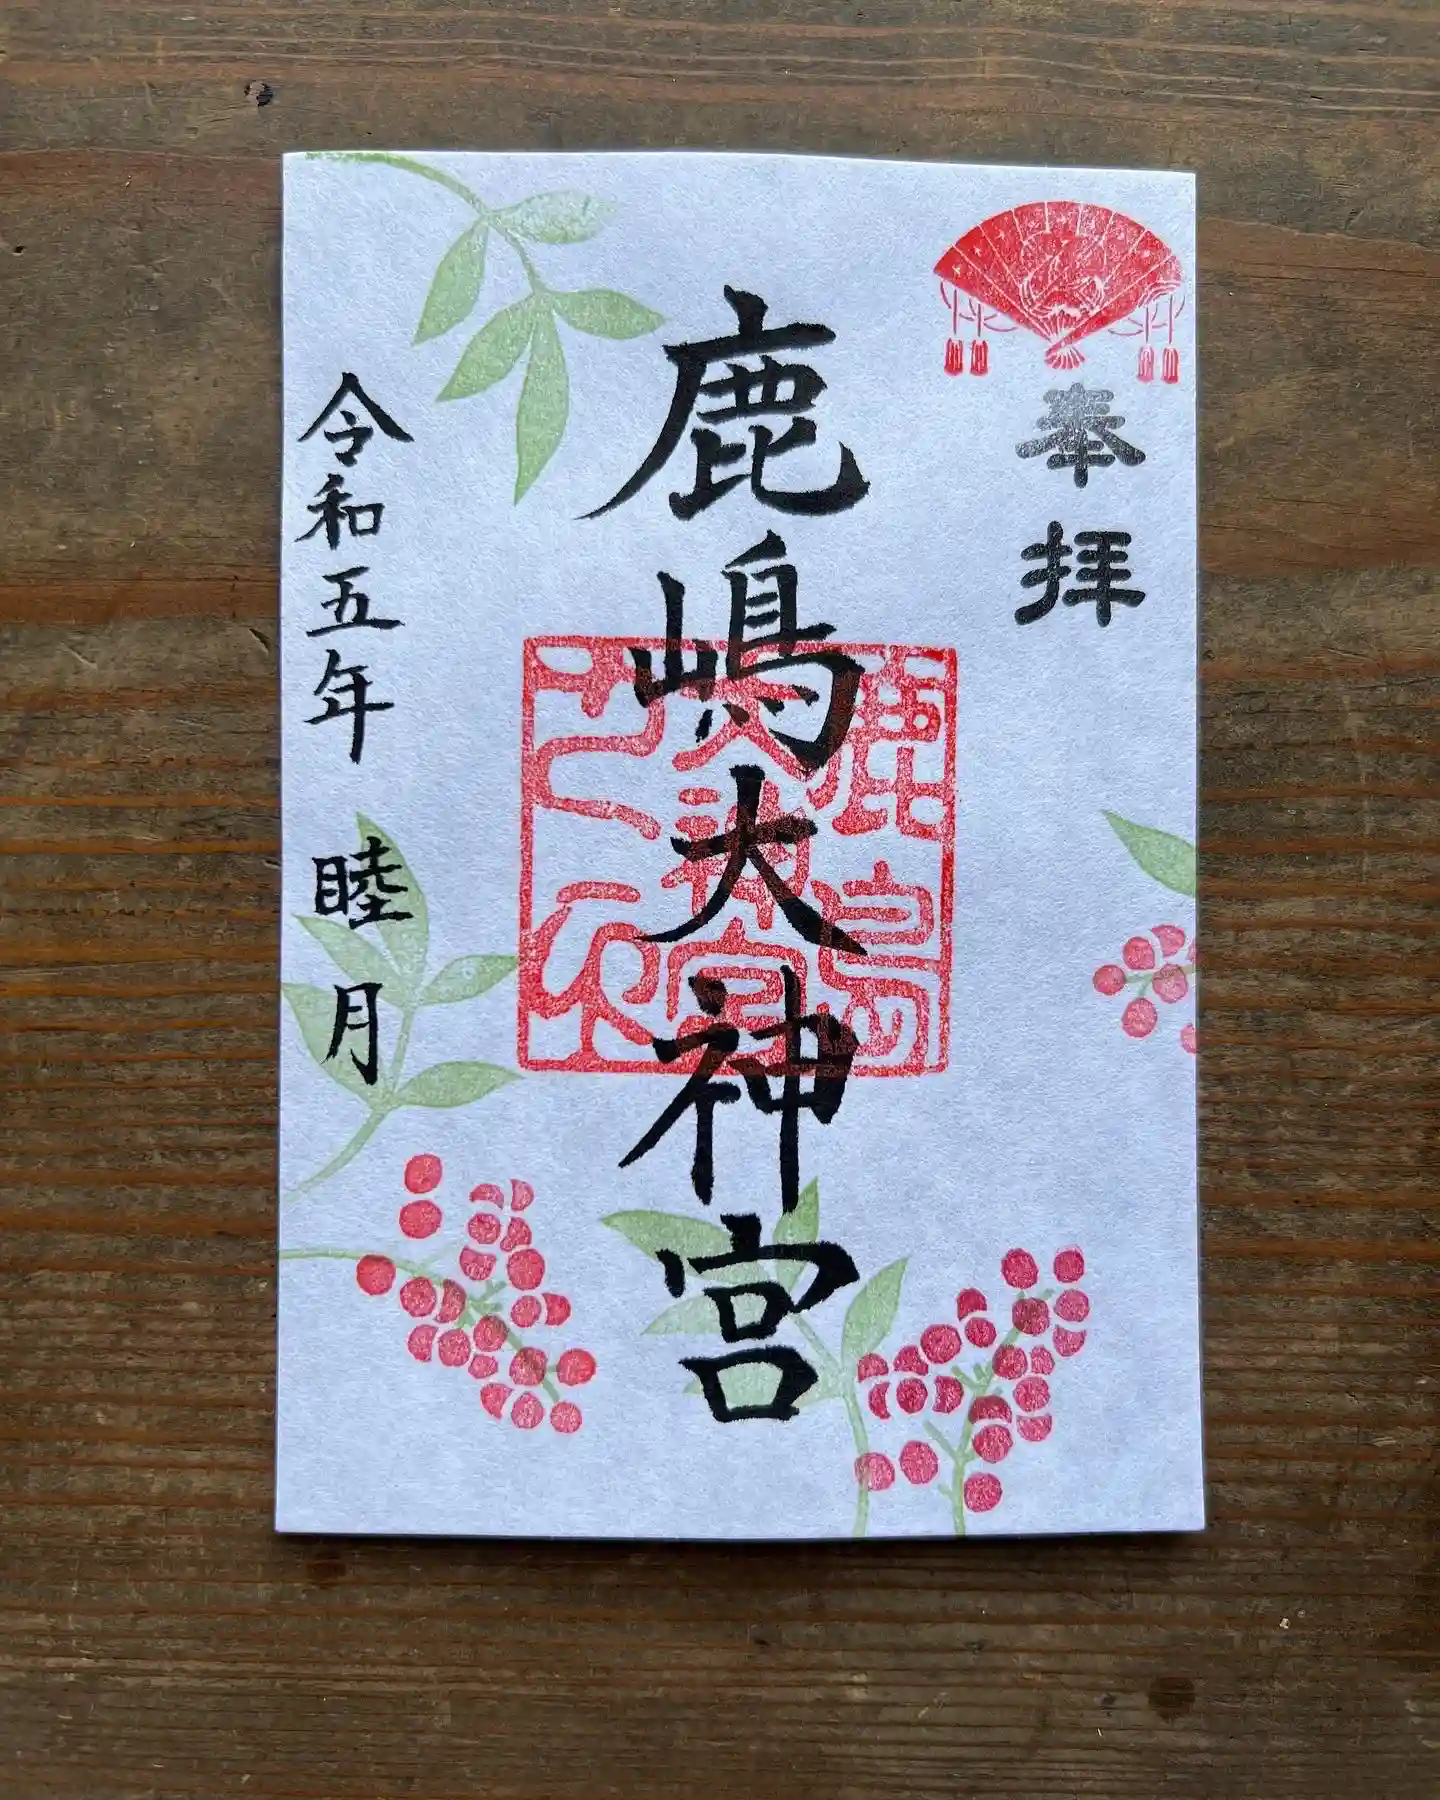 奉拝
鹿嶋大神宮
鹿島
大神宮
之印
令和五年 睦月